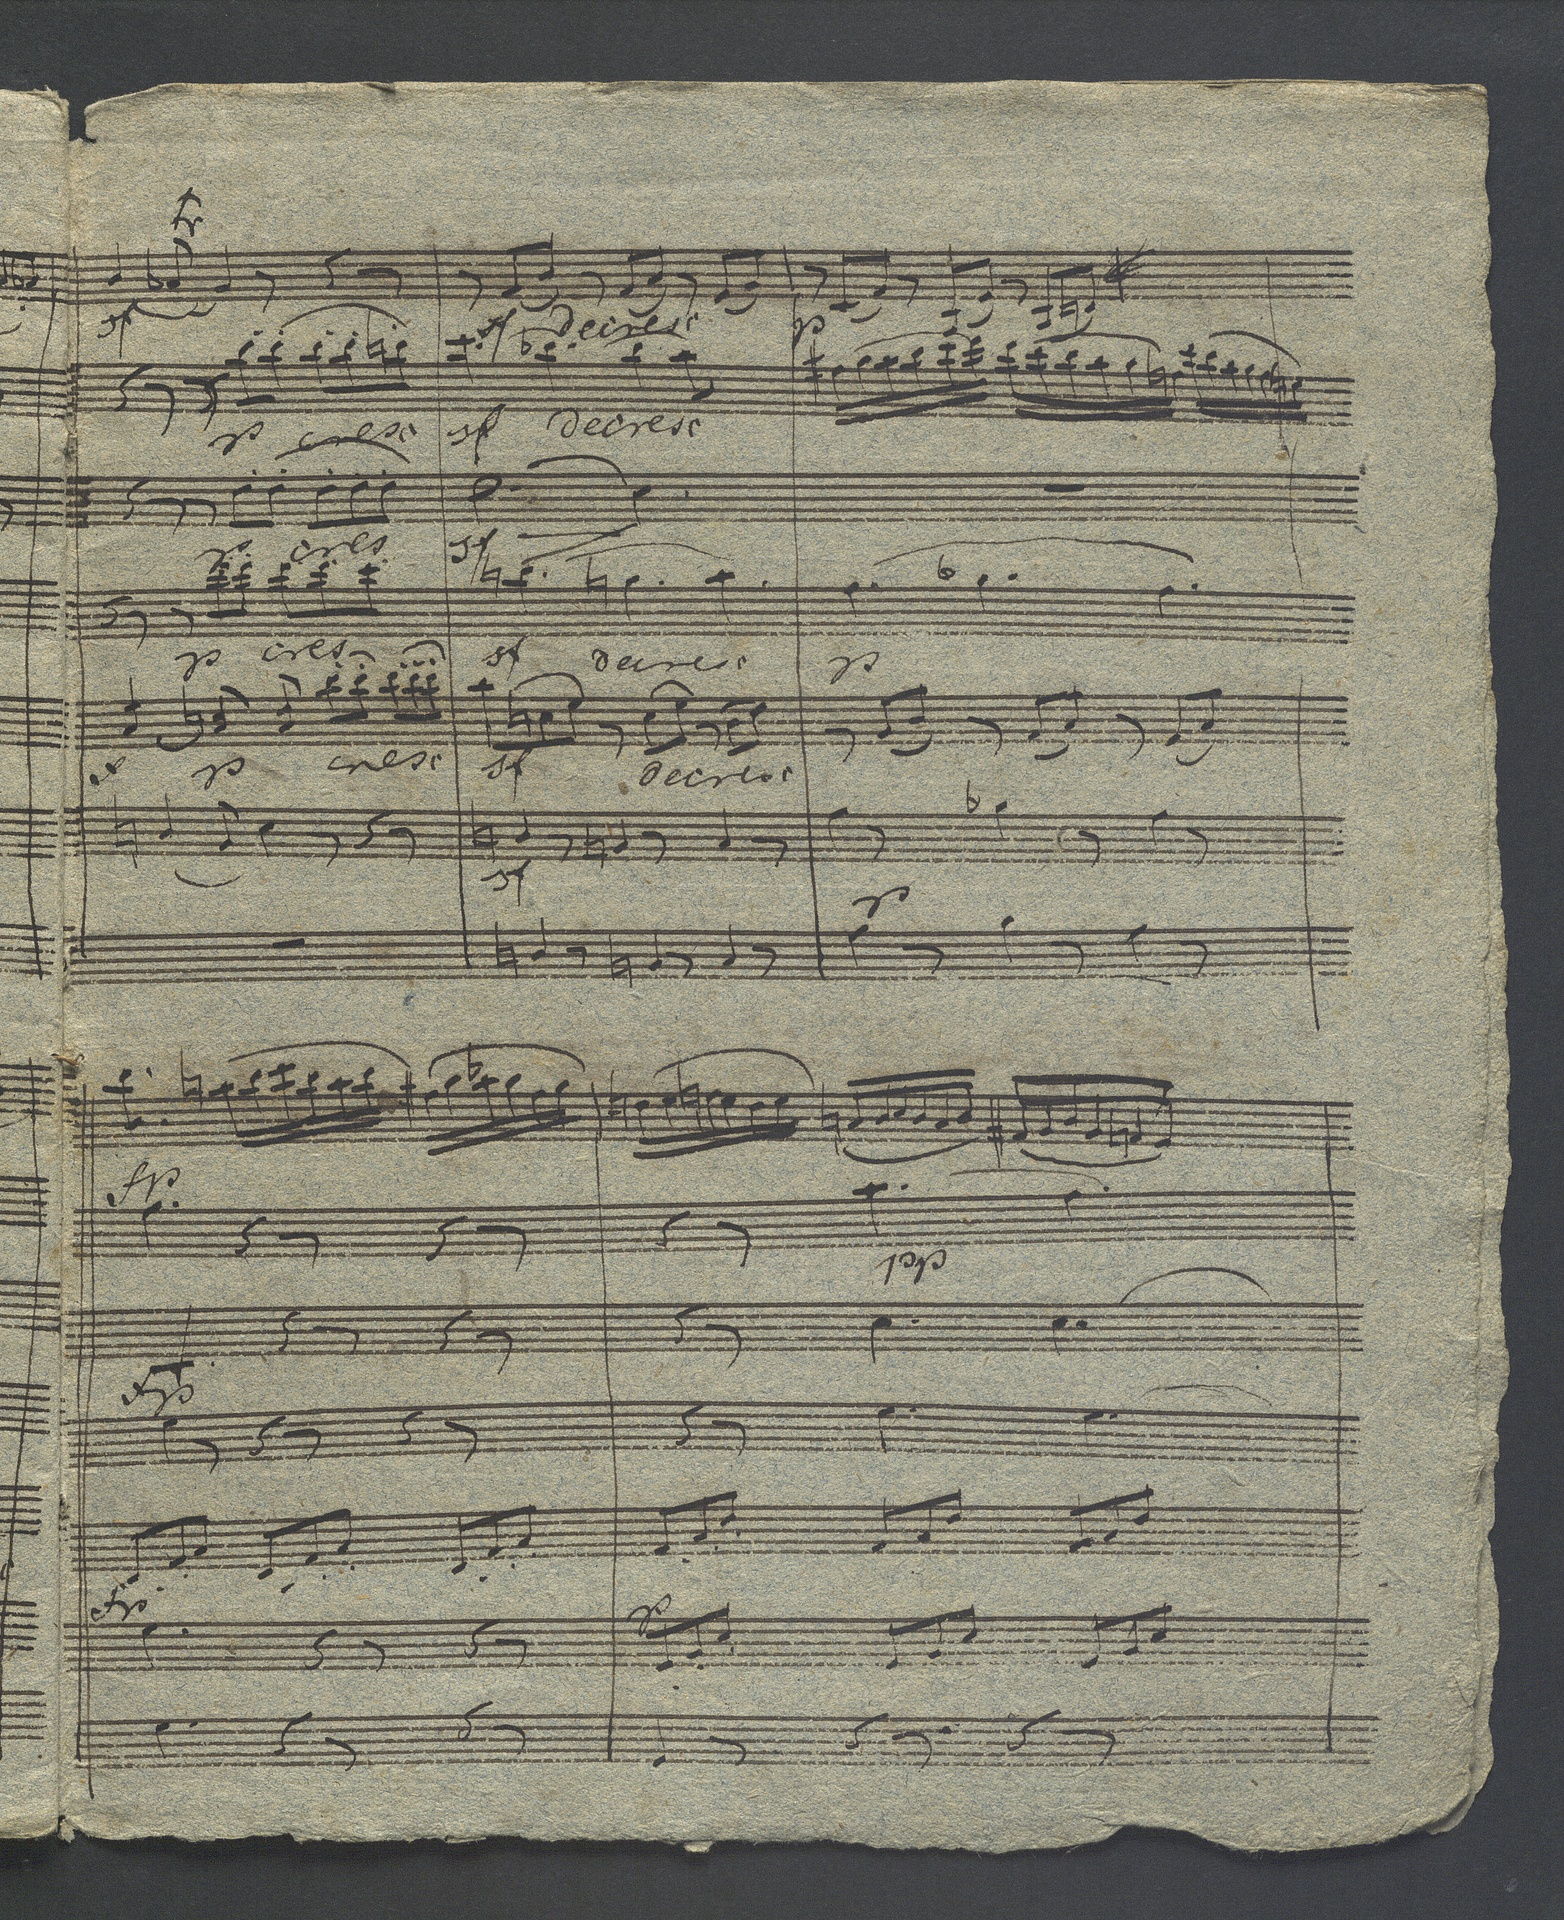 tr
sf
sf decresc p
p cresc sf decresc
p cres sf
p cres sf decresc p
p cresc sf decresc
sf
p
fp
pp
fp
fp
p